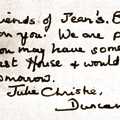 iends of Jean's. B
on you. We are p
ou may have some
est House & would
omorrow.
Julie Christie
Duncan